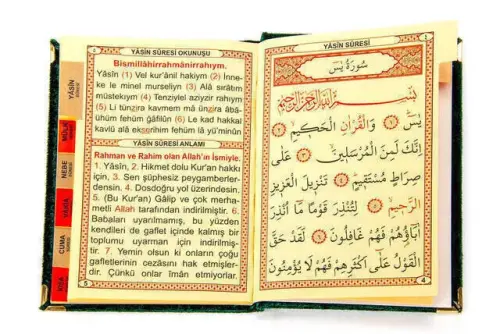 YÂSİN SÛRESİ OKUNUŞU
Bismillâhirrahmânirrahıym.
Yâsîn (1) Vel kur'ânil hakiym (2) İnne-
ke le minel murseliyn (3) Alâ sırâtim
müstekıym (4) Tenziylel aziyzir rahıym.
(5) Li tünzira kavmem mâ ünzira âbâ-
ühüm fehüm gâfilûn (6) Le kad hakkal
kavlü alâ ekserihim fehüm lâ yü'minûn
YÂSİN SÛRESİ ANLAMI
Rahman ve Rahim olan Allah'ın İsmiyle.
1. Yâsîn, 2. Hikmet dolu Kur'an hakkı
için, 3. Sen şüphesiz peygamberler-
densin. 4. Dosdoğru yol üzerindesin.
5. (Bu Kur'an) Gâlip ve çok merha-
metli Allah tarafından indirilmiştir. 6.
Babaları uyarılmamış, bu yüzden
kendileri de gaflet içinde kalmış bir
toplumu uyarman için indirilmiş-
tir. 7. Yemin olsun ki onların çoğu
gafletlerinin cezasını hak etmişler-
dir. Çünkü onlar îman etmiyorlar.
5
YÂSİN
MÜLK
NEBE
CUMA
YÂSİN SÛRESİ
سُورَةُ يٰسٓ
بِسْمِ اللّٰهِ الرَّحْمٰنِ الرَّحِيمِ
يٰسٓ ﴿١﴾ وَالْقُرْاٰنِ الْحَكِيمِ ﴿٢﴾
اِنَّكَ لَمِنَ الْمُرْسَلِينَ ﴿٣﴾ عَلٰى
صِرَاطٍ مُسْتَقِيمٍ ﴿٤﴾ تَنْزِيلَ الْعَزِيزِ
الرَّحِيمِ ﴿٥﴾ لِتُنْذِرَ قَوْمًا مَٓا اُنْذِرَ
اٰبَٓاؤُ۬هُمْ فَهُمْ غَافِلُونَ ﴿٦﴾ لَقَدْ حَقَّ
الْقَوْلُ عَلٰٓى اَكْثَرِهِمْ فَهُمْ لَا يُؤْمِنُونَ
4